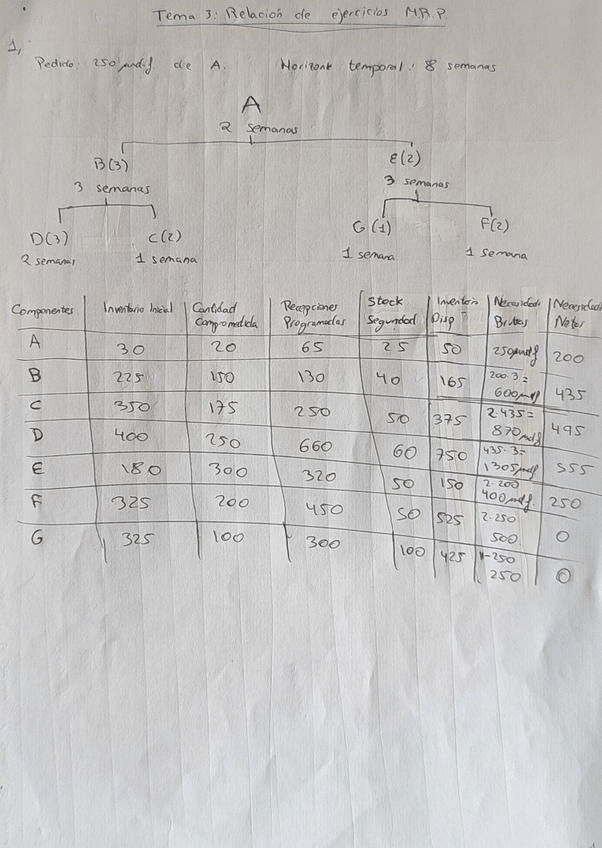 Tema 3: Relación de ejercicios M.R.P.
1,
Pedido: 250 unds de A. Horizont temporal: 8 semanas
A
2 semanas
B(3) E(2)
3 semanas 3 semanas
D(3) C(2) G(1) F(2)
2 semanas 1 semana 1 semana 1 semana
Componentes Inventario Inicial Cantidad Compromedida Recepciones Programadas Stock Seguridad Inventario Disp Necesidade Brutas Necesidad Netas
A 30 20 65 25 50 250 unds 200
B 225 150 130 40 165 200·3= 600 unds 435
C 350 175 250 50 375 2·435= 870 unds 495
D 400 250 660 60 750 435·3= 1305 unds 555
E 180 300 320 50 150 2·200 400 unds 250
F 325 200 450 50 525 2·250 500 0
G 325 100 300 100 425 1·250 250 0